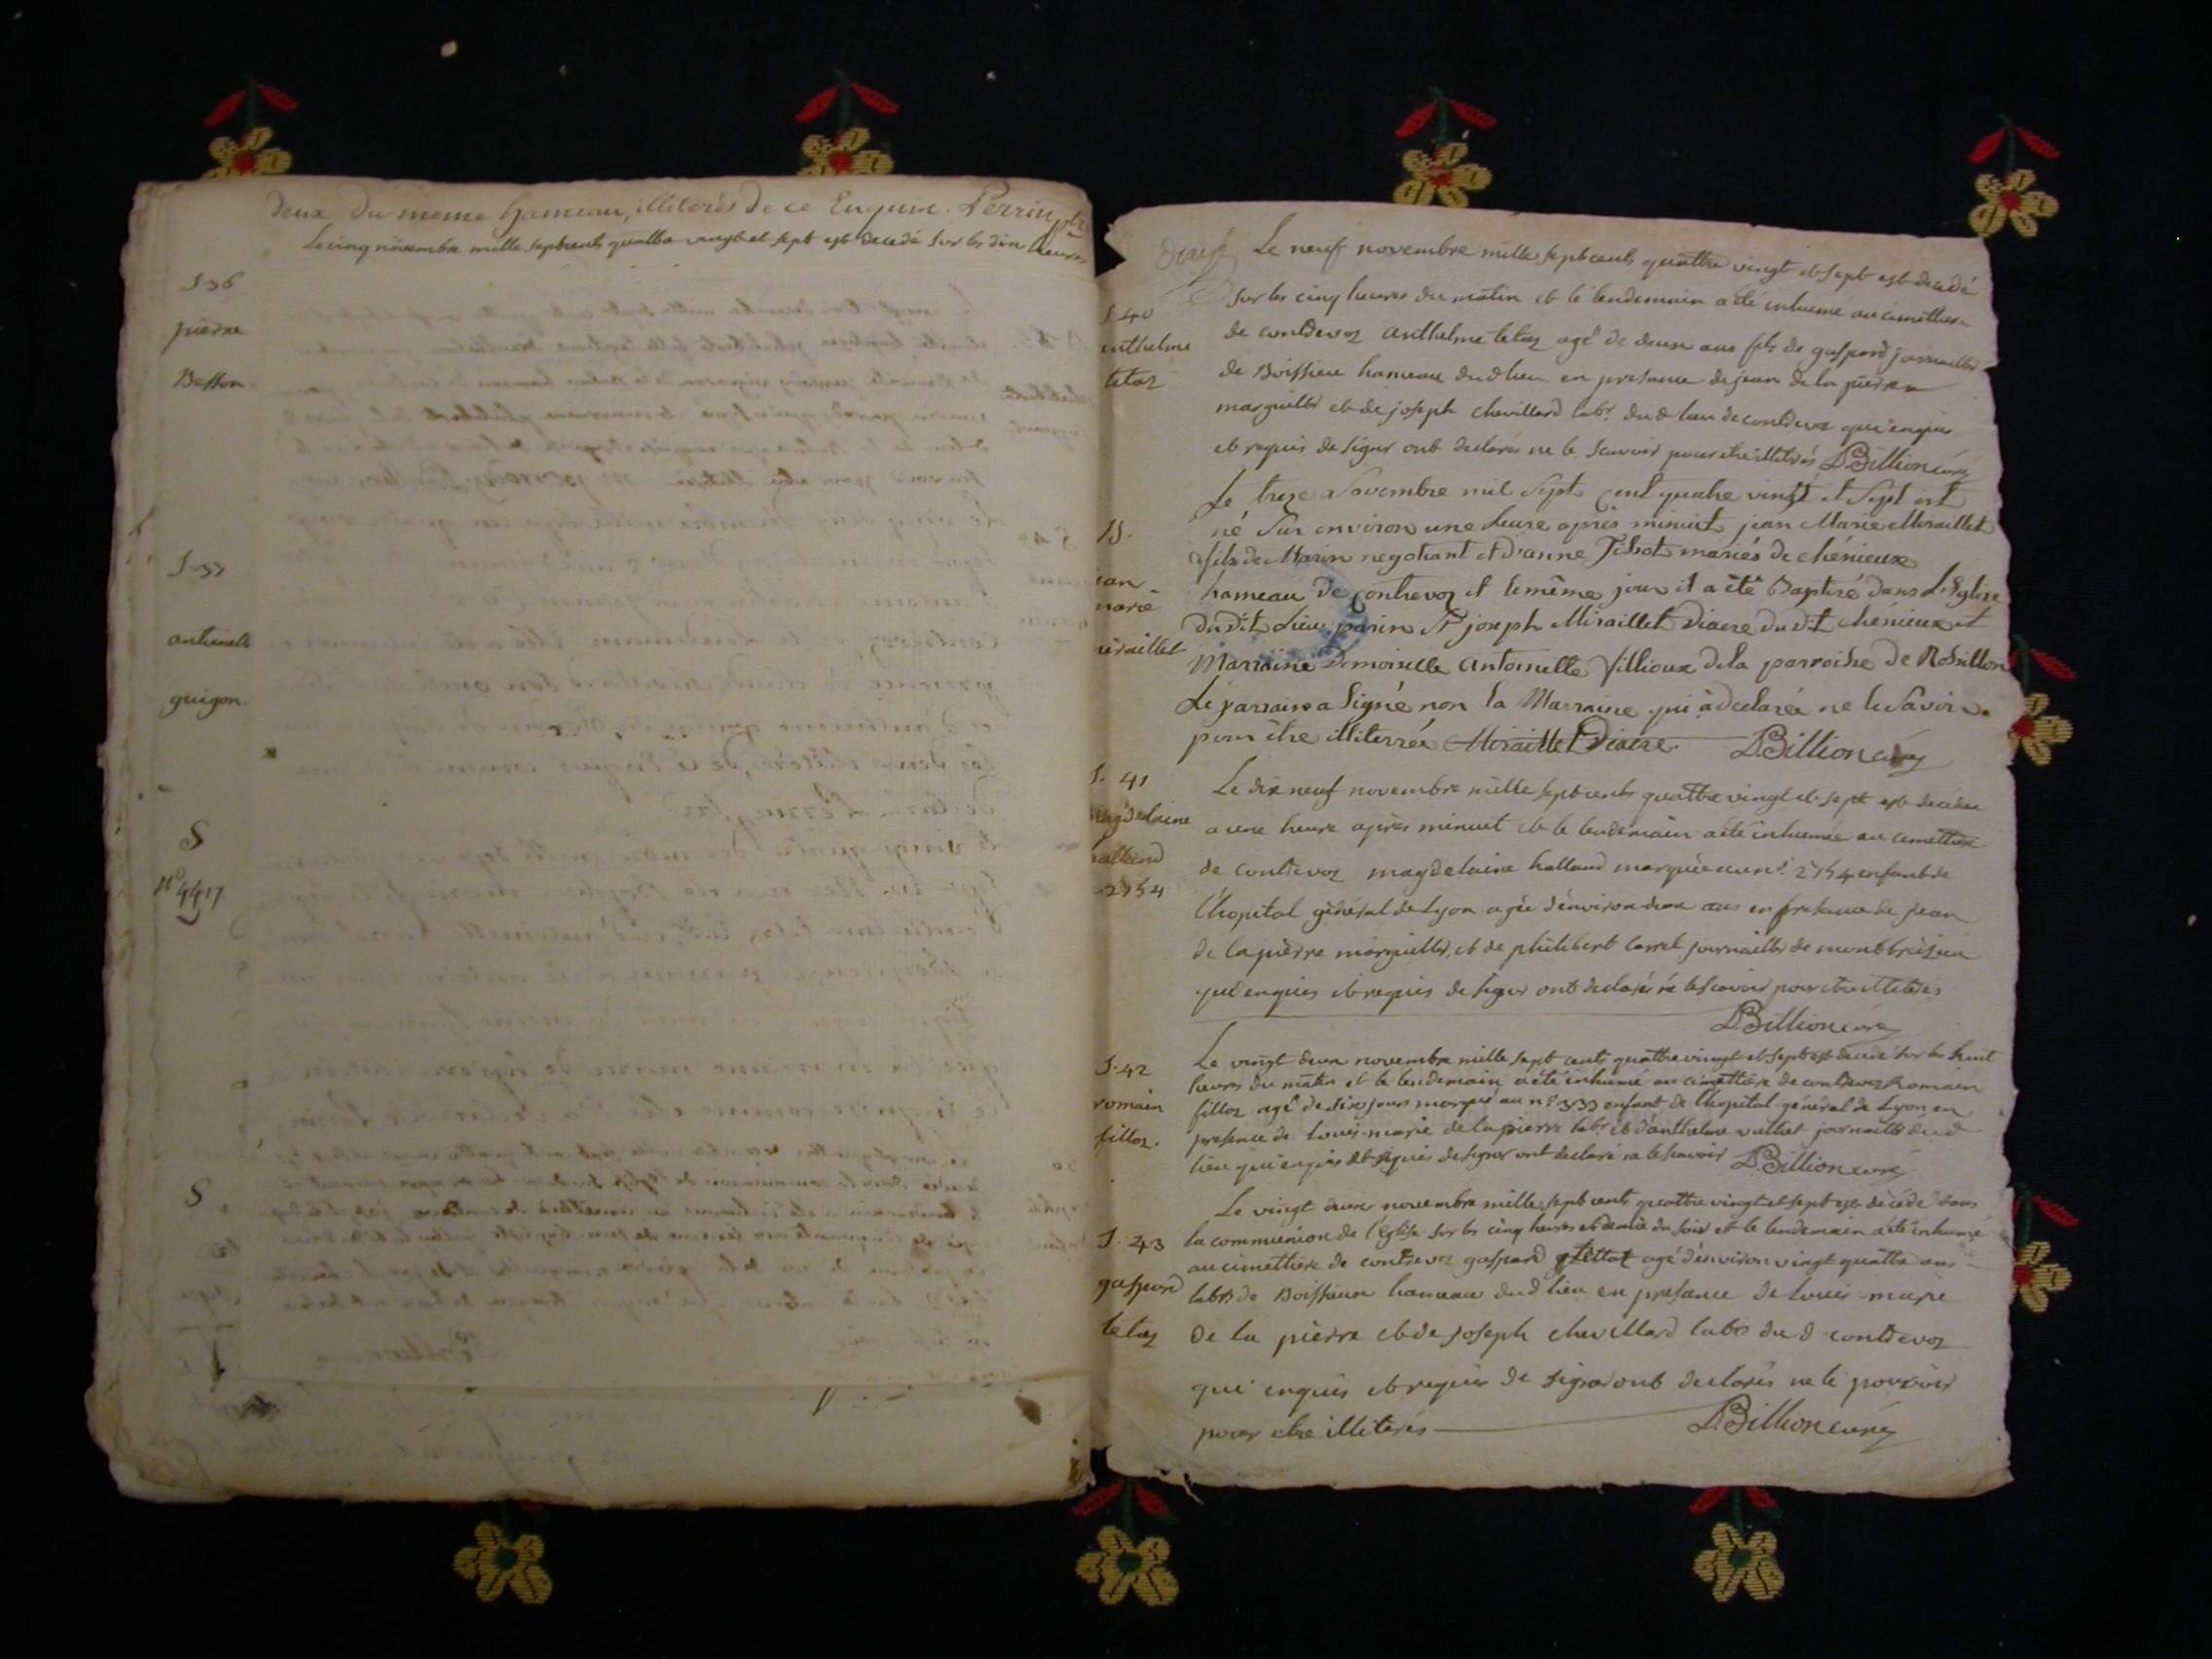 deux du meme hameau, illiterés de ce Enquis. Perrin ptre
Le cinq novembre mille septcents quattre vingt et sept est decedé sur les dix heures
S 36
pierre
Besson
S 37
antoinette
guigon
S
n° 4417
S
Le neuf novembre mille septcents quattre vingt et sept est decedé
S. 40
anthelme
tetaz
sur les cinq heures du matin et le lendemain a été inhumé au cimettiere
de contrevoz anthelme tetaz agé de deux ans fils de gaspard journaillier
de Boissieu hameau dud lieu en presance de jean de la pierre
marguillier et de joseph chevillard labr. dud lieu de contrevoz qui enquis
et requis de signer ont declarés ne le scavoir pour etre illiterés D Billion curé
B.
jean
marie
miraillet
Le treze Novembre mil Sept Cent quatre vingt et Sept est
né Sur environ une heure après minuit jean Marie Miraillet
fils de Marin negotiant et d'anne Tissot mariés de chénieux
hameau de Contrevoz et le même jour il a été Baptisé dans L'Eglise
dudit Lieu parin Sr joseph Miraillet Diacre dudit chénieux et
Marraine Demoiselle Antoinette Fillioux de la parroisse de Rossillon
Le parrain a Signé non la Marraine qui a declarée ne le Savoir
pour être illiterrée Miraillet Diacre D. Billion curé
S. 41
magdelaine
halland
2754
Le dix neuf novembre mille septcents quattre vingt et sept est decedée
a une heure après minuit et le lendemain a été inhumée au cimettiere
de contrevoz magdelaine halland marquée au n° 2754 enfant de
l'hopital général de Lyon agée d'environ deux ans en presance de jean
de la pierre marguillier, et de philibert carrel journaillier de montbreisieu
qui enquis et requis de signer ont declarés ne le scavoir pour etre illiterés
D Billion curé
S. 42
romain
filloz.
Le vingt deux novembre mille sept cents quattre vingt et sept est decedé sur les huit
heures du matin et le lendemain a été inhumé au cimettiere de contrevoz Romain
filloz agé de dix jours marqué au n° 333 enfant de l'hopital général de Lyon en
presence de Louis-marie de la pierre labr. et d'anthelme vuillet journaillier dud
lieu qui enquis et requis de signer ont declaré ne le scavoir D. Billion curé
S. 43
gaspard
tetaz
Le vingt deux novembre mille septcents quattre vingt et sept est décédé dans
la communion de l'Eglise sur les cinq heures et demie du soir et le lendemain a été inhumé
au cimettiere de contrevoz gaspard tettaz agé d'environ vingt quattre ans
labr de Boissieu hameau dud lieu en presance de Louis marie
de la pierre et de joseph chevillard labr dud contrevoz
qui enquis et requis de signer ont declarés ne le pouvoir
pour etre illiterés D. Billion curé